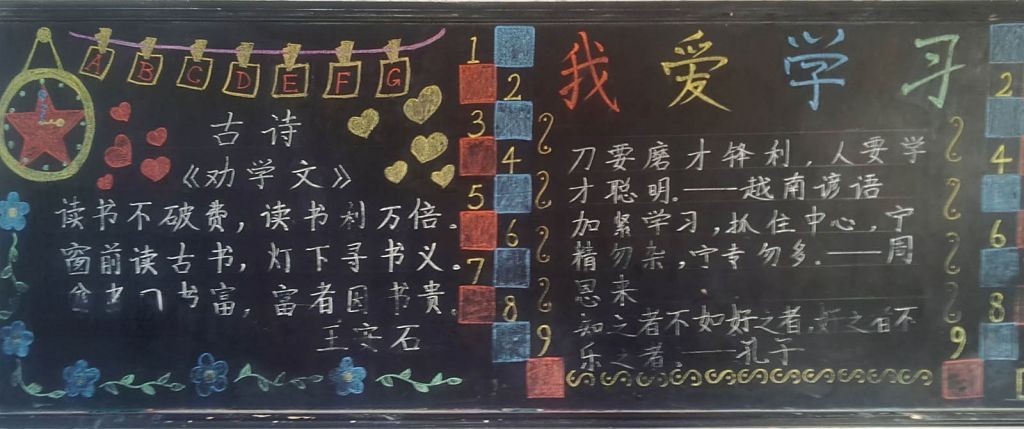 A B C D E F G
古诗
《劝学文》
读书不破费，读书利万倍。
窗前读古书，灯下寻书义。
书富，富者因书贵。
王安石
1
2
3
4
5
6
7
8
9
我爱学习
刀要磨才锋利，人要学
才聪明.——越南谚语
加紧学习，抓住中心，宁
精勿杂，宁专勿多.——周
恩来
知之者不如好之者，好之者不
乐之者。——孔子
2
4
6
8
9